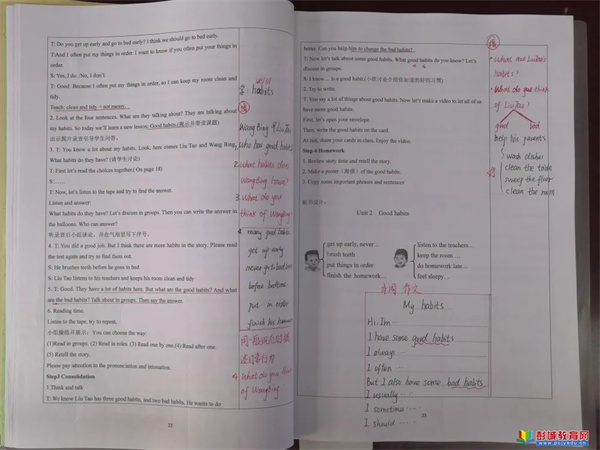 T: Do you get up early and go to bed early? I think we should go to bed early.
T:And I often put my things in order. I want to know if you often put your things in
order.
S: Yes, I do. /No, I don't.
T: Good. Because I often put my things in order, so I can keep my room clean and
tidy.
Teach: clean and tidy = not messy
2. Look at the four sentences. What are they talking about? They are talking about
my habits. So today we'll learn a new lesson: Good habits.(揭示并带读课题)
出示图片录音引导学生回答。
3. T: You know a lot about my habits. Look, here comes Liu Tao and Wang Bing.
What habits do they have? (请学生讨论)
T: First let's read the choices together.( On page18)
S: ......
T: Now, let's listen to the tape and try to find the answer.
Listen and answer:
What habits do they have? Let's discuss in groups. Then you can write the answer in
the balloons. Who can answer?
4. T: You did a good job. But I think there are more habits in the story. Please read
the text again and try to find them out.
S: He brushes teeth before he goes to bed
S: Liu Tao listens to his teachers and keeps his room clean and tidy
5. T: Good. They have a lot of habits here. But what are the good habits? And what
are the bad habits? Talk about in groups. Then say the answer.
6. Reading time.
Listen to the tape, try to repeat.
小组操练并展示: You can choose the way:
(1)Read in groups. (2) Read in roles. (3) Read one by one.(4) Read after one.
(5) Retell the story.
Please pay attention to the pronunciation and intonation.
Step3 Consolidation
1.Think and talk
T: We know Liu Tao has three good habits, and two bad habits. He wants to do
habits
Wang Bing 和 Liu Tao
who has good habits
2. What habits does
Wang Bing have?
3. What do you
think of Wang Bing
4. many good habits
get up early
never go to bed late
before bedtime
put in order
finish his homework
4. What do you
of Wang Bing
better. Can you help him to change the bad habits?
T: Now let's talk about some good habits. What good habits do you know? Let's
discuss in groups.
S: I know ... is a good habit.
2. Try to write.
T: You say a lot of things about good habits. Now let's make a video to let all of us
have more good habits.
First, let's open the envelope.
Then, write the good habits on the card.
At last, share your cards to class. Enjoy the video.
Step 4 Homework
1. Review story time and retell the story.
2. Make a poster (海报) of the good habits.
3. Copy some important phrases and sentences
板书设计:
Unit 2 Good habits
get up early, never…
brush teeth
put things in order
finish the homework…
listen to the teachers…
keep the room …
do homework late…
feel sleepy…
作文
My habits
Hi, I'm …
I have some good habits
I always …
I often …
But I also have some bad habits.
I usually …
I sometimes …
I should …
What are Liu Tao's
habits?
What do you think
of Liu Tao?
good bad
help his parents
wash dishes
clean the table
sweep the floor
clean the room
彭城教育网
www.pcjyedu.cn